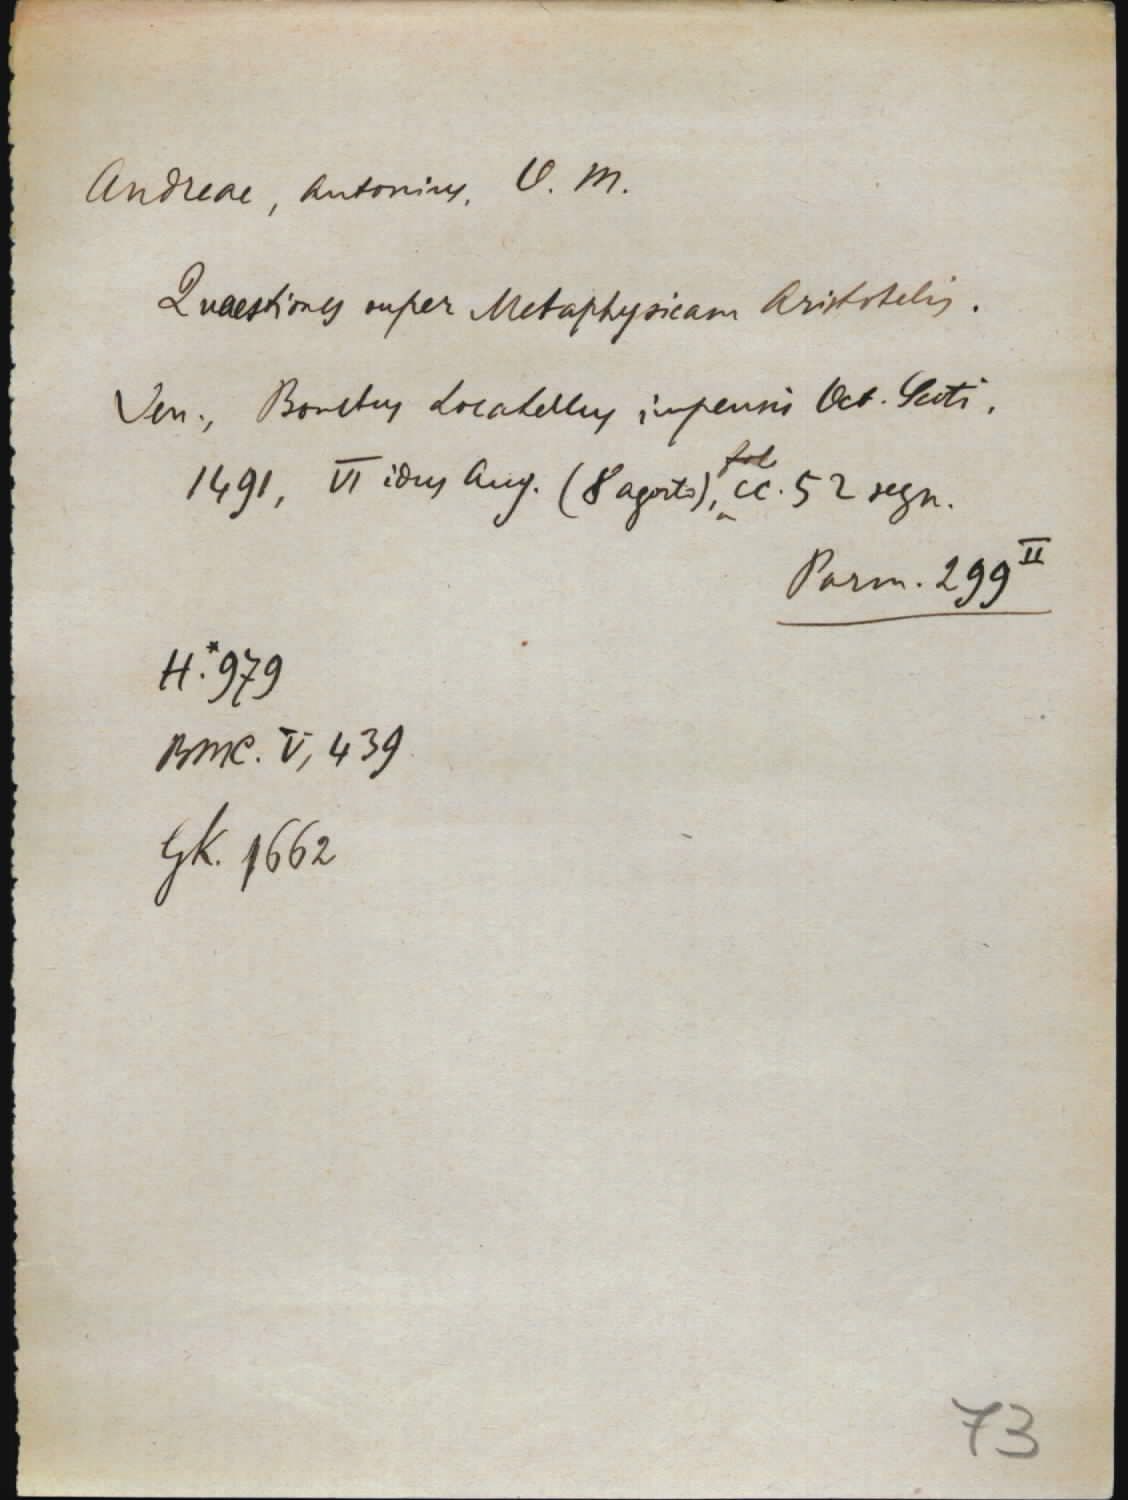 Andreae, Antonius, O. M.
Quaestiones super Metaphysicam Aristotelis.
Ven., Bonetus Locatellus impensis Oct. Scoti,
fol
1491, VI idus Aug. (8 agosto), cc. 52 segn.
Parm. 299 II
H.*979
BMC. V, 439
GK. 1662
73